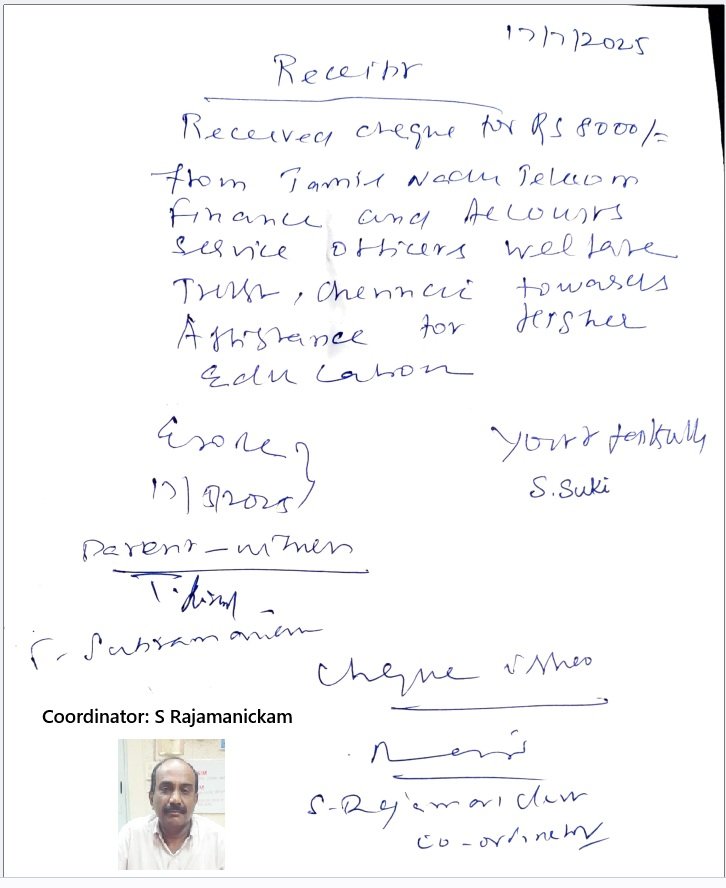 17/7/2025
Receipt
Received cheque for Rs 8000/=
from Tamil Nadu Telecom
finance and Accounts
service officers welfare
Trust, Chennai towards
Assistance for Higher
Education
Erode
17/7/2025
Yours faithfully
S. Suki
Parent - witness
T.
T. Subramaniam
Cheque issued
Coordinator: S Rajamanickam
S. Rajamanickam
co-ordinator